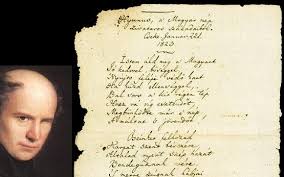 Hymnus, a' Magyar nép
zivataros századaiból.
Cseke, Január. 22d.
1823
Isten áldd meg a' Magyart
Jó kedvvel, bőséggel,
Nyújts feléje védő kart
Ha küzd ellenséggel,
Bal sors a' kit régen tép
Hozz rá víg esztendőt,
Megbűnhődte már e' nép
A' multat 's jövendőt.
Őseinket felhozád
Kárpát szent bérczére,
Általad nyert szép hazát
Bendegúznak vére.
'S merre zúgnak habjai